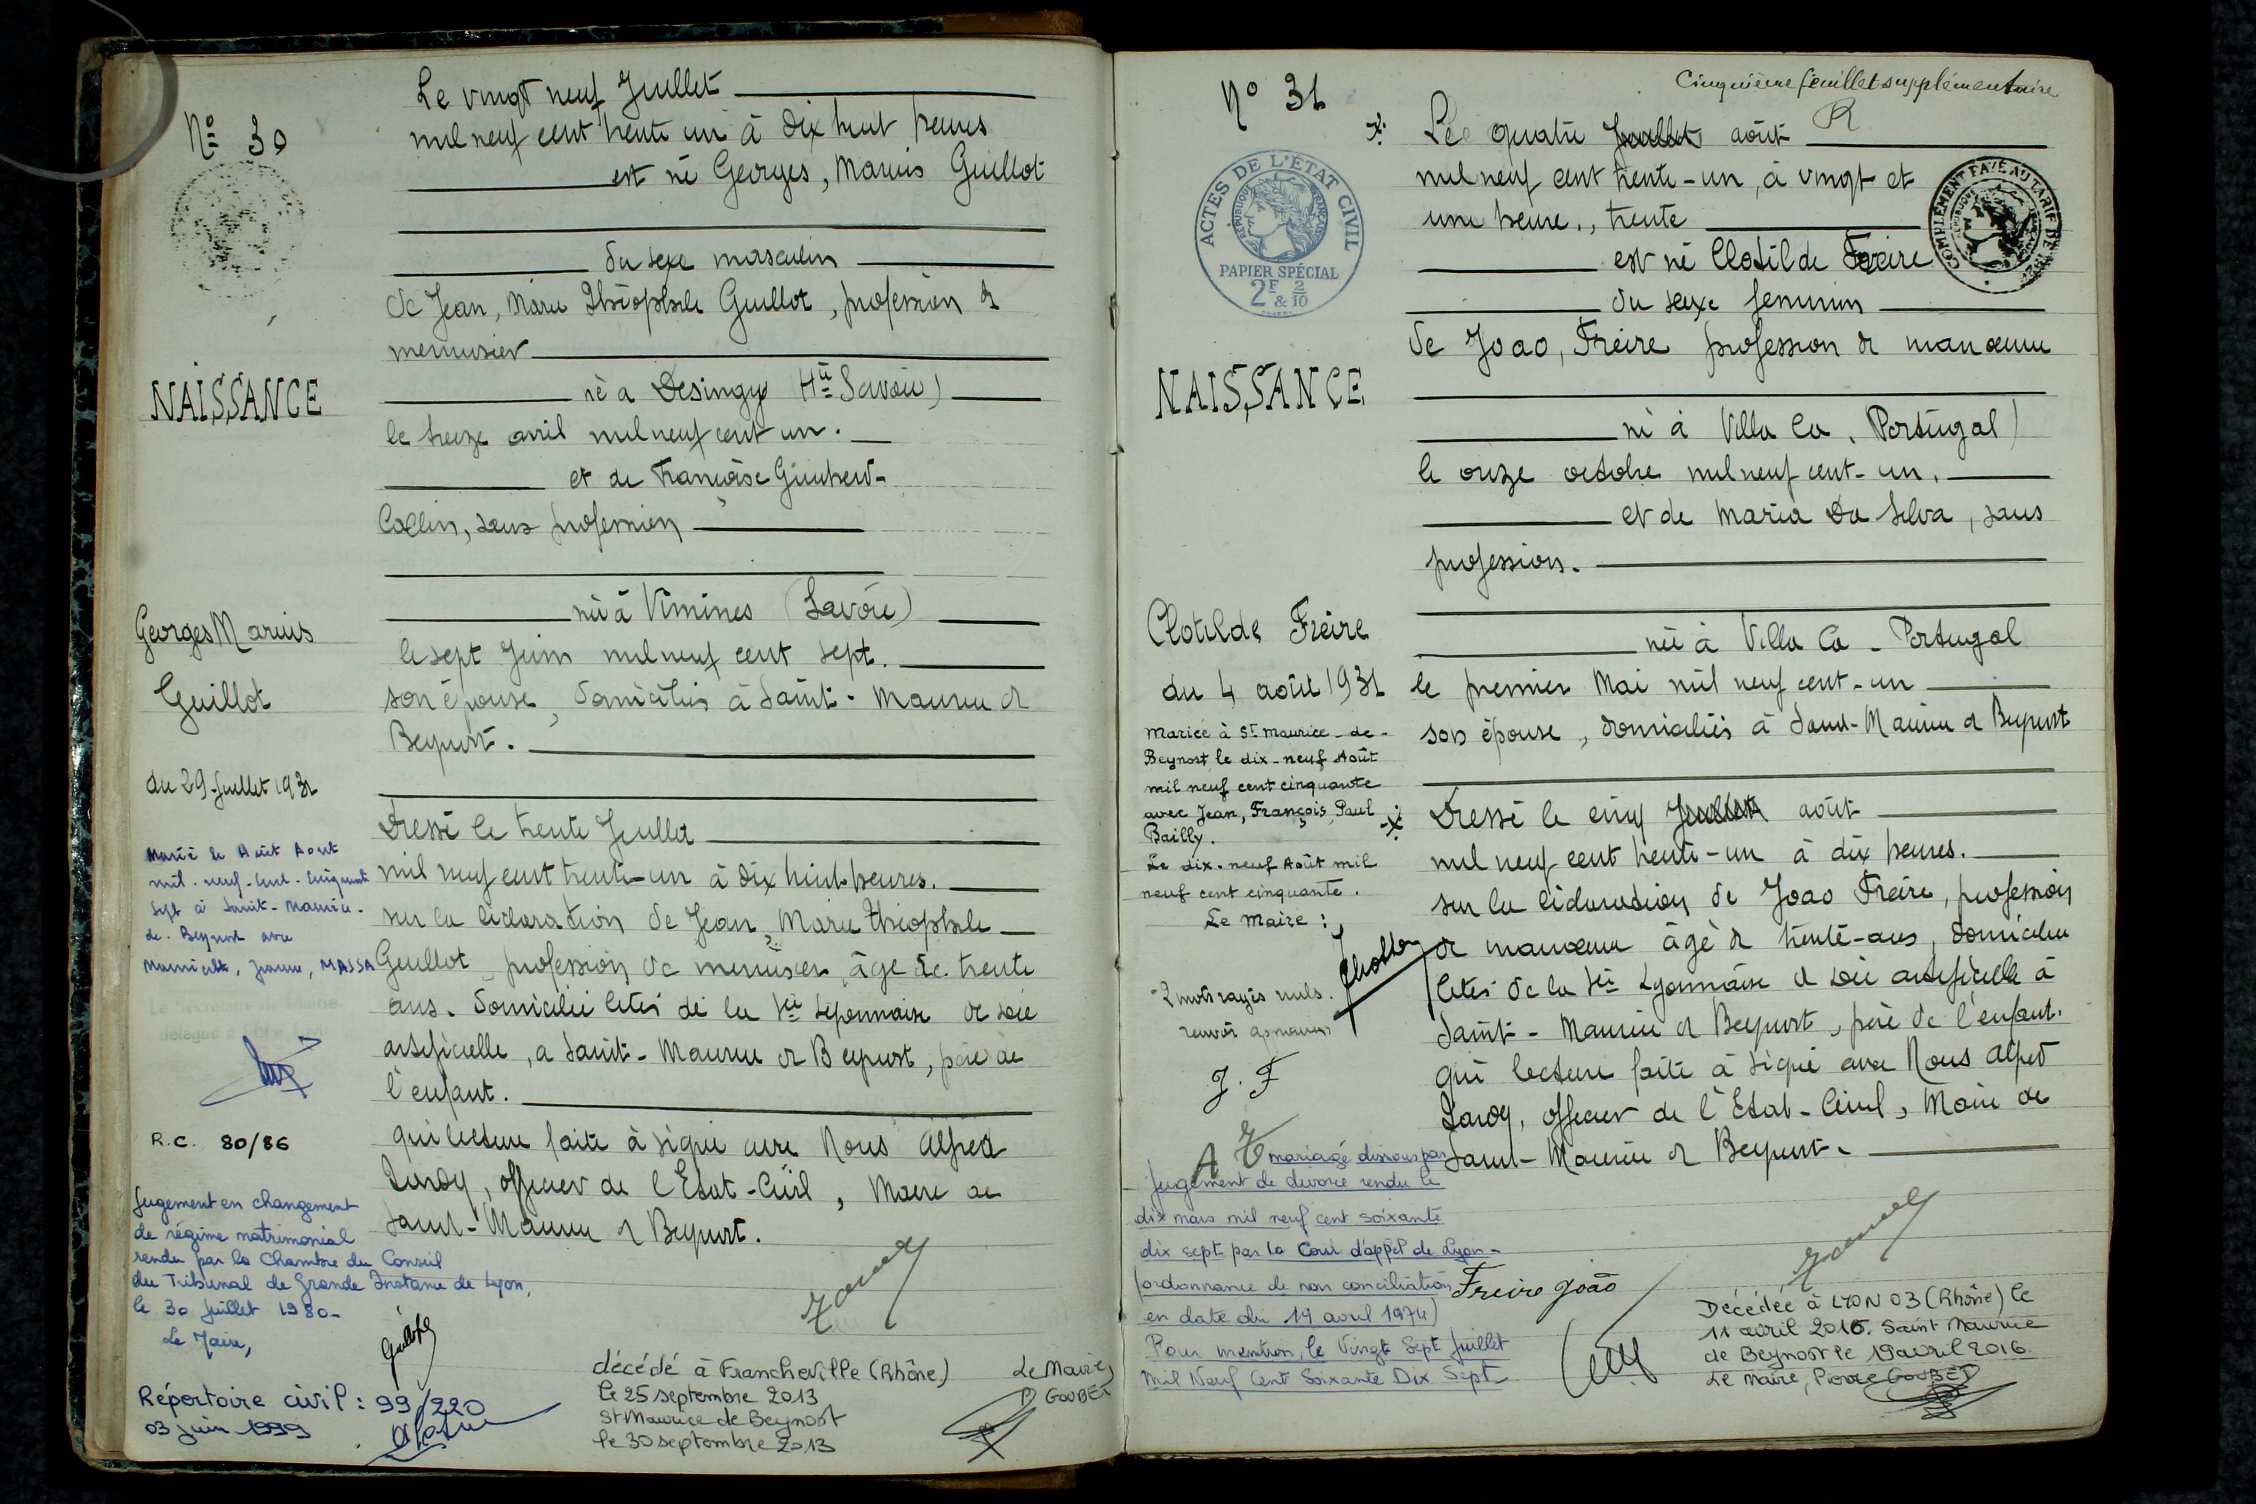 Le vingt neuf Juillet
N° 30
mil neuf cent trente un à dix huit heures
est né Georges, Marius Guillot
du sexe masculin
de Jean, Marie Théophile Guillot, profession de
menuisier
NAISSANCE
né a Desingy (Hte Savoie)
le treize avril mil neuf cent un.
et de Françoise
Collin, sans profession
née à Vimines (Savoie)
Georges Marius
Guillot
le sept Juin mil neuf cent sept.
son épouse, domiciliés à Saint-Maurice de
Beynost.
du 29 Juillet 1931
Dressé le trente Juillet
mil neuf cent trente-un à dix huit heures.
sur la déclaration de Jean, Marie Théophile
Guillot profession de menuisier âgé de trente
ans. domicilié cités de la Sté Lyonnaise de soie
artificielle, a Saint-Maurice de Beynost, père de
l'enfant.
qui lecture faite à signé avec Nous Alfred
officier de l'Etat-Civil, Maire de
Saint-Maurice de Beynost.
Marié le Huit Aout
mil-neuf-cent-cinquante
sept à Saint-Maurice-
de-Beynost avec
Jeanne, MASSA
R.C. 80/86
Jugement en changement
de régime matrimonial
rendu par la Chambre du Conseil
du Tribunal de Grande Instance de Lyon,
le 30 Juillet 1980-
Le Maire,
Répertoire civil: 99/220
03 juin 1999
décédé à Francheville (Rhône)
le 25 septembre 2013
St Maurice de Beynost
le 30 septembre 2013
Le Maire,
P GOUBET
Cinquième feuillet supplémentaire
N° 31
Le quatre Juillet août
mil neuf cent trente-un, à vingt et
une heure, trente
est né Clotilde Freire
du sexe feminin
ACTES DE L'ETAT CIVIL
REPUBLIQUE FRANÇAISE
PAPIER SPÉCIAL
2F & 2/10
COMPLÉMENT PAYÉ AU TARIF DE
de Joao, Freire profession de manœuvre
NAISSANCE
né à Villa Ca. Portugal)
le onze octobre mil neuf cent-un.
et de Maria Da Silva, sans
profession.
Clotilde Freire
du 4 août 1931
née à Villa Ca - Portugal
le premier Mai mil neuf cent-un
son épouse, domiciliés à Saint-Maurice de Beynost
Dressé le cinq Juillet août
mil neuf cent trente-un à dix heures.
sur la déclaration de Joao Freire, profession
de manœuvre âgé de trente-ans, domicilié
cités de la Sté Lyonnaise de soie artificielle à
Saint-Maurice de Beynost, père de l'enfant.
qui lecture faite à signé avec Nous Alfred
officier de l'Etat-Civil, Maire de
Saint-Maurice de Beynost.
Mariée à St Maurice-de-
Beynost le dix-neuf Août
mil neuf cent cinquante
avec Jean, François, Paul
Bailly.
Le dix-neuf Août mil
neuf cent cinquante.
Le Maire:
2 mots rayés nuls.
renvoi approuvés
J. F
mariage dissous par
jugement de divorce rendu le
dix mars mil neuf cent soixante
dix sept par la Cour d'appel de Lyon-
(ordonnance de non conciliation
en date du 14 avril 1974)
Pour mention, le Vingt Sept Juillet
Mil Neuf Cent Soixante Dix Sept
Freire João
Décédée à LYON 03 (Rhône) le
11 avril 2016. Saint Maurice
de Beynost le 19 avril 2016.
Le Maire, Pierre GOUBET